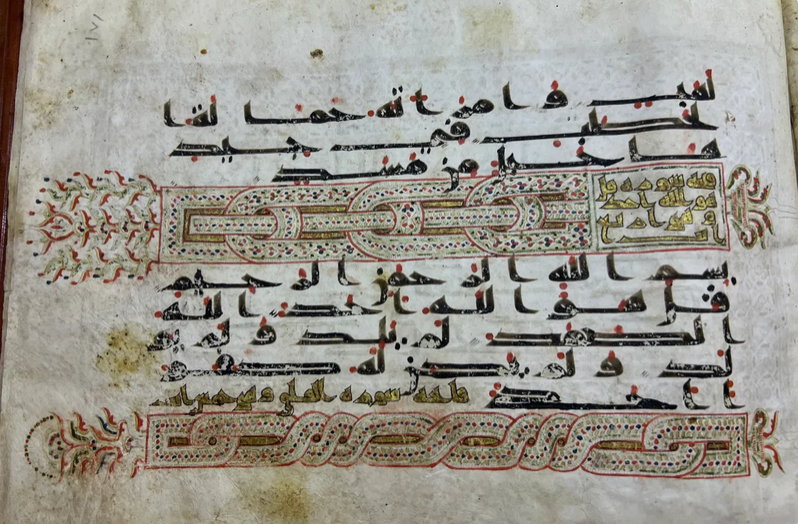 لهب و امراته حمالة ا
لحطب في جيد
ها حبل من مسد
فاتحه سوره قل
هو الله احد
وهي اربع
بسم الله الرحمن الرحيم
قل هو الله احد الله
الصمد لم يلد و لم يو
لد و لم يكن له كفو
ا احد فاتحه سوره الفلق وهي خمس ايات